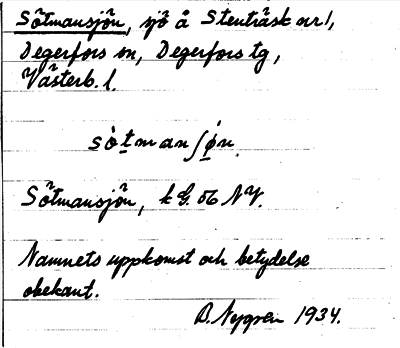 Sötmansjön, sjö å Stenträsk nr 1,
Degerfors sn, Degerfors tg,
Västerb. l.
sòtmanʃø̀n.
Sötmansjön, k G. 56 NV.
Namnets uppkomst och betydelse
obekant.
B. Nygren 1934.